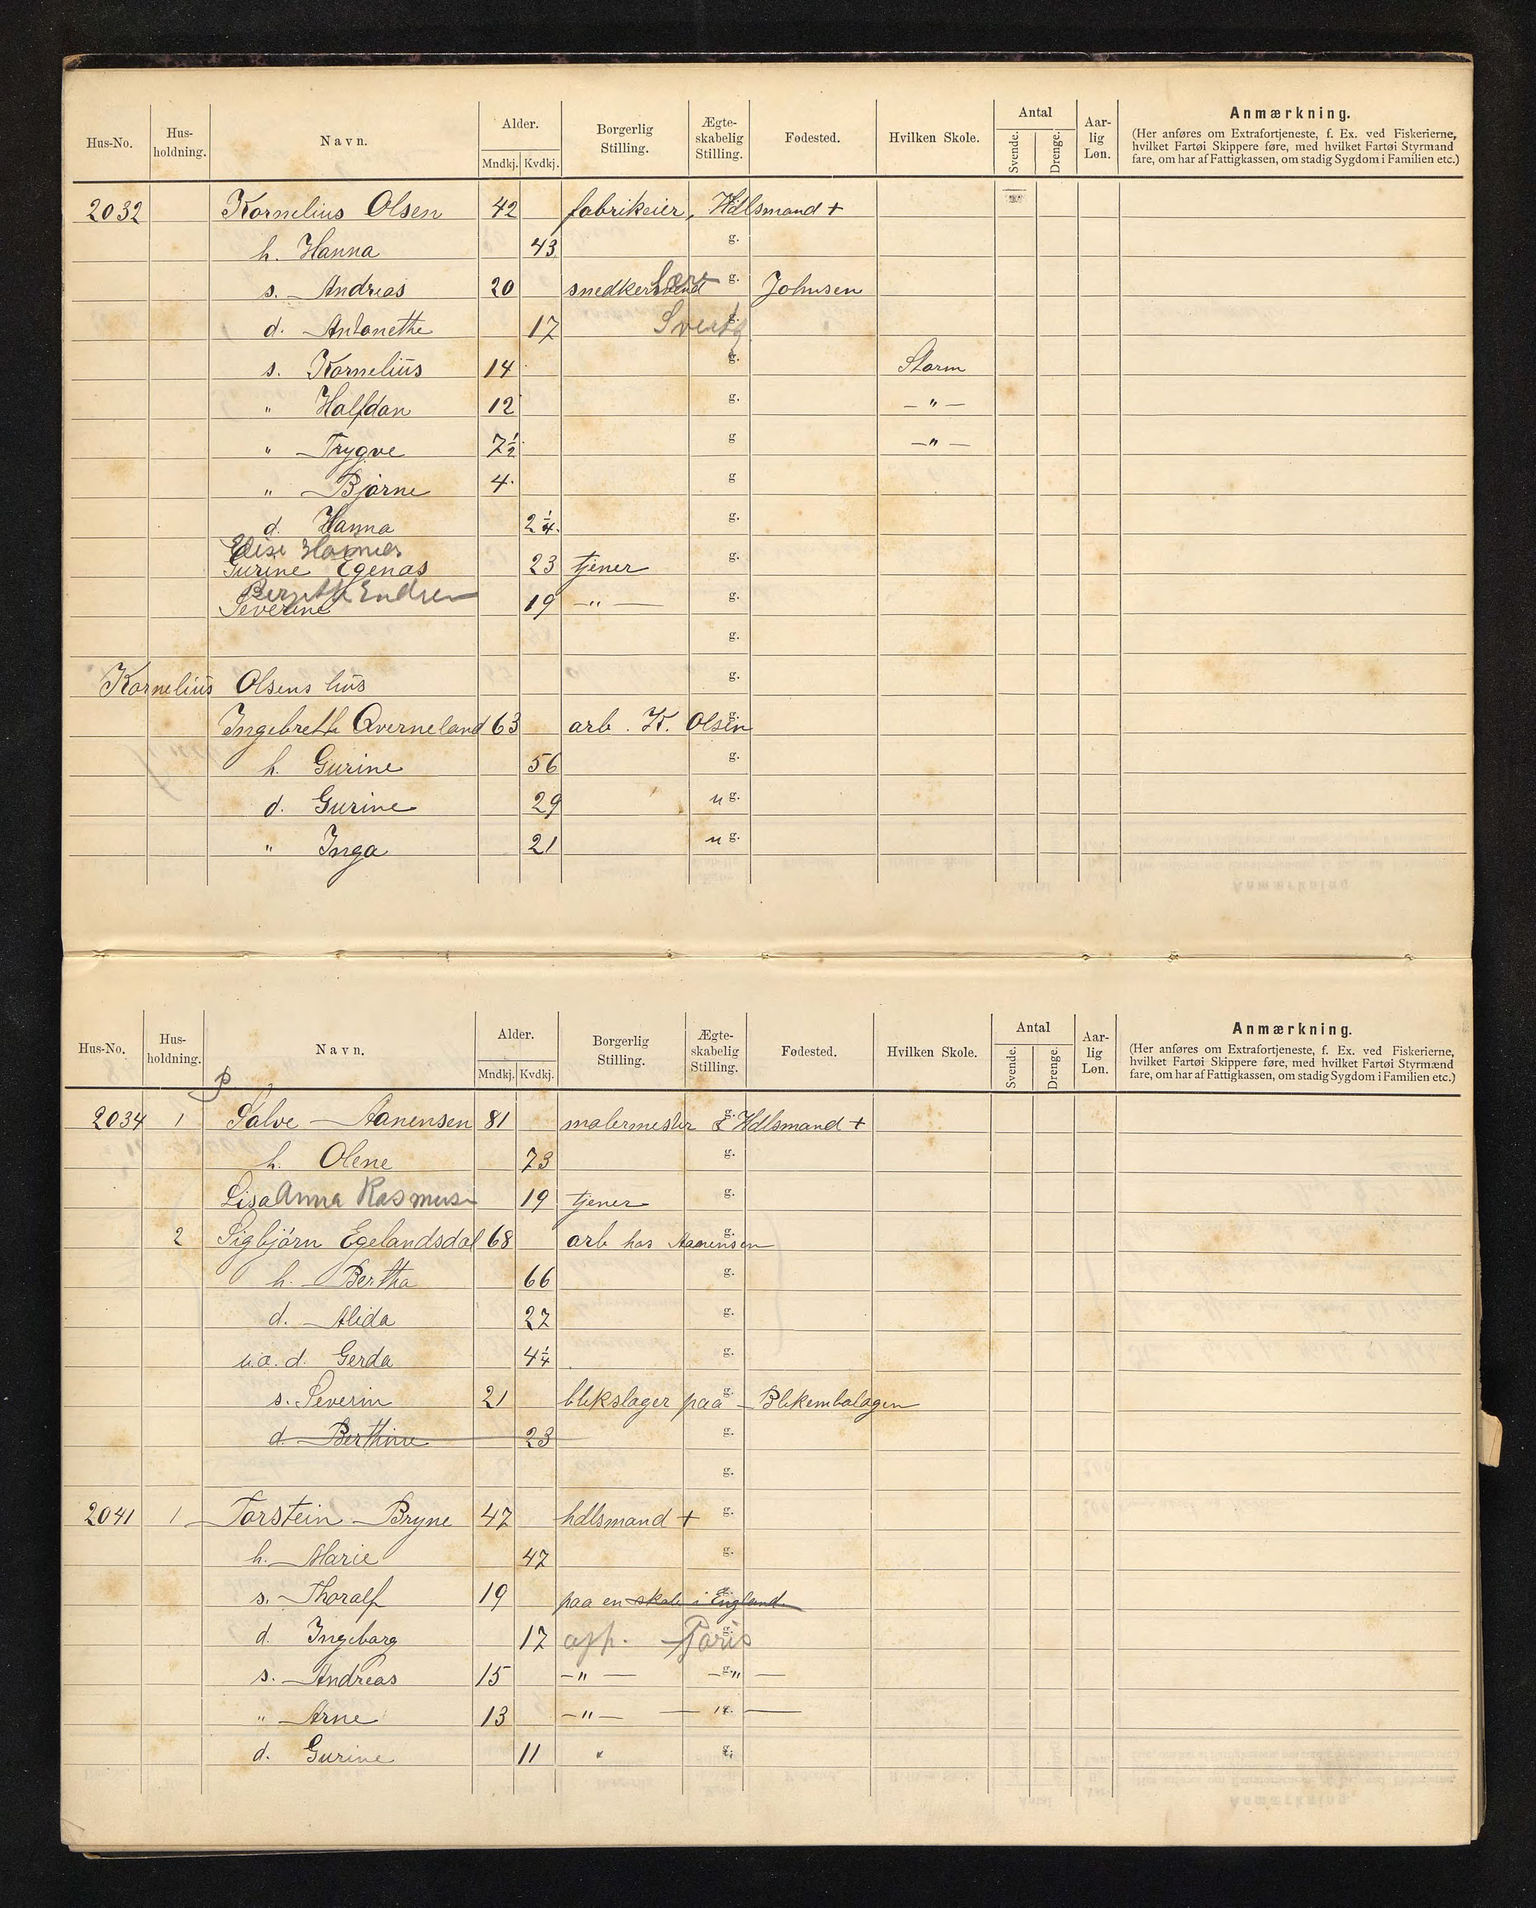 Hus-No. Hus-holdning. Navn. Alder. Mndkj. Kvdkj. Borgerlig Stilling. Ægte-skabelig Stilling. Fødested. Hvilken Skole. Antal Svende. Drenge. Aar-lig Løn. Anmærkning.
(Her anføres om Extrafortjeneste, f. Ex. ved Fiskerierne,
hvilket Fartøi Skippere føre, med hvilket Fartøi Styrmænd
fare, om har af Fattigkassen, om stadig Sygdom i Familien etc.)
2032 Kornelius Olsen 42 fabrikeier, Hdlsmand +
h. Hanna 43 g.
s. Andreas 20 snedkersvend g. Johnsen
d. Antonethe 17 g.
s. Kornelius 14 g. Storm
" Halfdan 12 g. — " —
" Trygve 7½ g — " —
" Bjarne 4 g
d. Hanna 2¼ g.
Elise
Gurine Egenas 23 tjener g.
Endresen
Severine 19 — " — g.
g.
Kornelius Olsens hus g.
Ingebreth Qverneland 63 arb. K. Olsen g.
h. Gurine 56 g.
d. Gurine 29 u g.
" Inga 21 u g.
Hus-No. Hus-holdning. Navn. Alder. Mndkj. Kvdkj. Borgerlig Stilling. Ægte-skabelig Stilling. Fødested. Hvilken Skole. Antal Svende. Drenge. Aar-lig Løn. Anmærkning.
(Her anføres om Extrafortjeneste, f. Ex. ved Fiskerierne,
hvilket Fartøi Skippere føre, med hvilket Fartøi Styrmænd
fare, om har af Fattigkassen, om stadig Sygdom i Familien etc.)
P
2034 1 Salve Aanensen 81 malermester & Hdlsmand + g.
h. Olene 73 g.
Lisa Anna Rasmusen 19 tjener g.
2 Sigbjørn Egelandsdal 68 arb hos Aanensen g.
h. Bertha 66 g.
d. Alida 27 g.
u.æ. d. Gerda 4¼ g.
s. Severin 21 blikslager paa Blikembalagen g.
d. Berthine 23 g.
g.
2041 1 Torstein Bryne 47 hdlsmand + g.
h. Marie 47 g.
s. Thoralf 19 paa en skole i England g.
d. Ingeborg 17 opp. Paris g.
s. Andreas 15 — " — g. — " —
" Arne 13 — " — — " — g.
d. Gurine 11 " g.